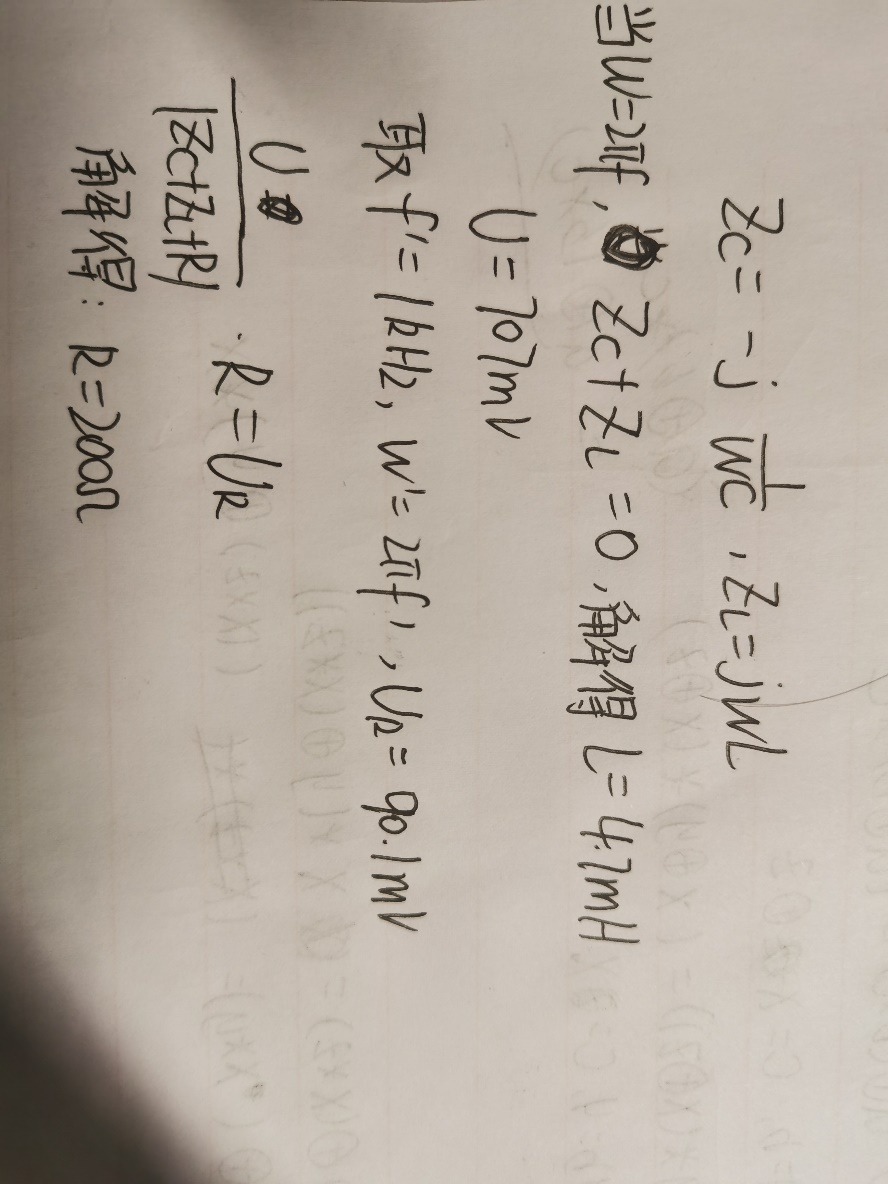 Zc = -j 1/WC , ZL = jWL
当W=2πf, Zc+ZL=0, 解得 L=4.7mH
U=707mV
取 f'=1kHz, W'=2πf', UR=90.1mV
U/|Zc+ZL+R| · R = UR
解得: R=200Ω